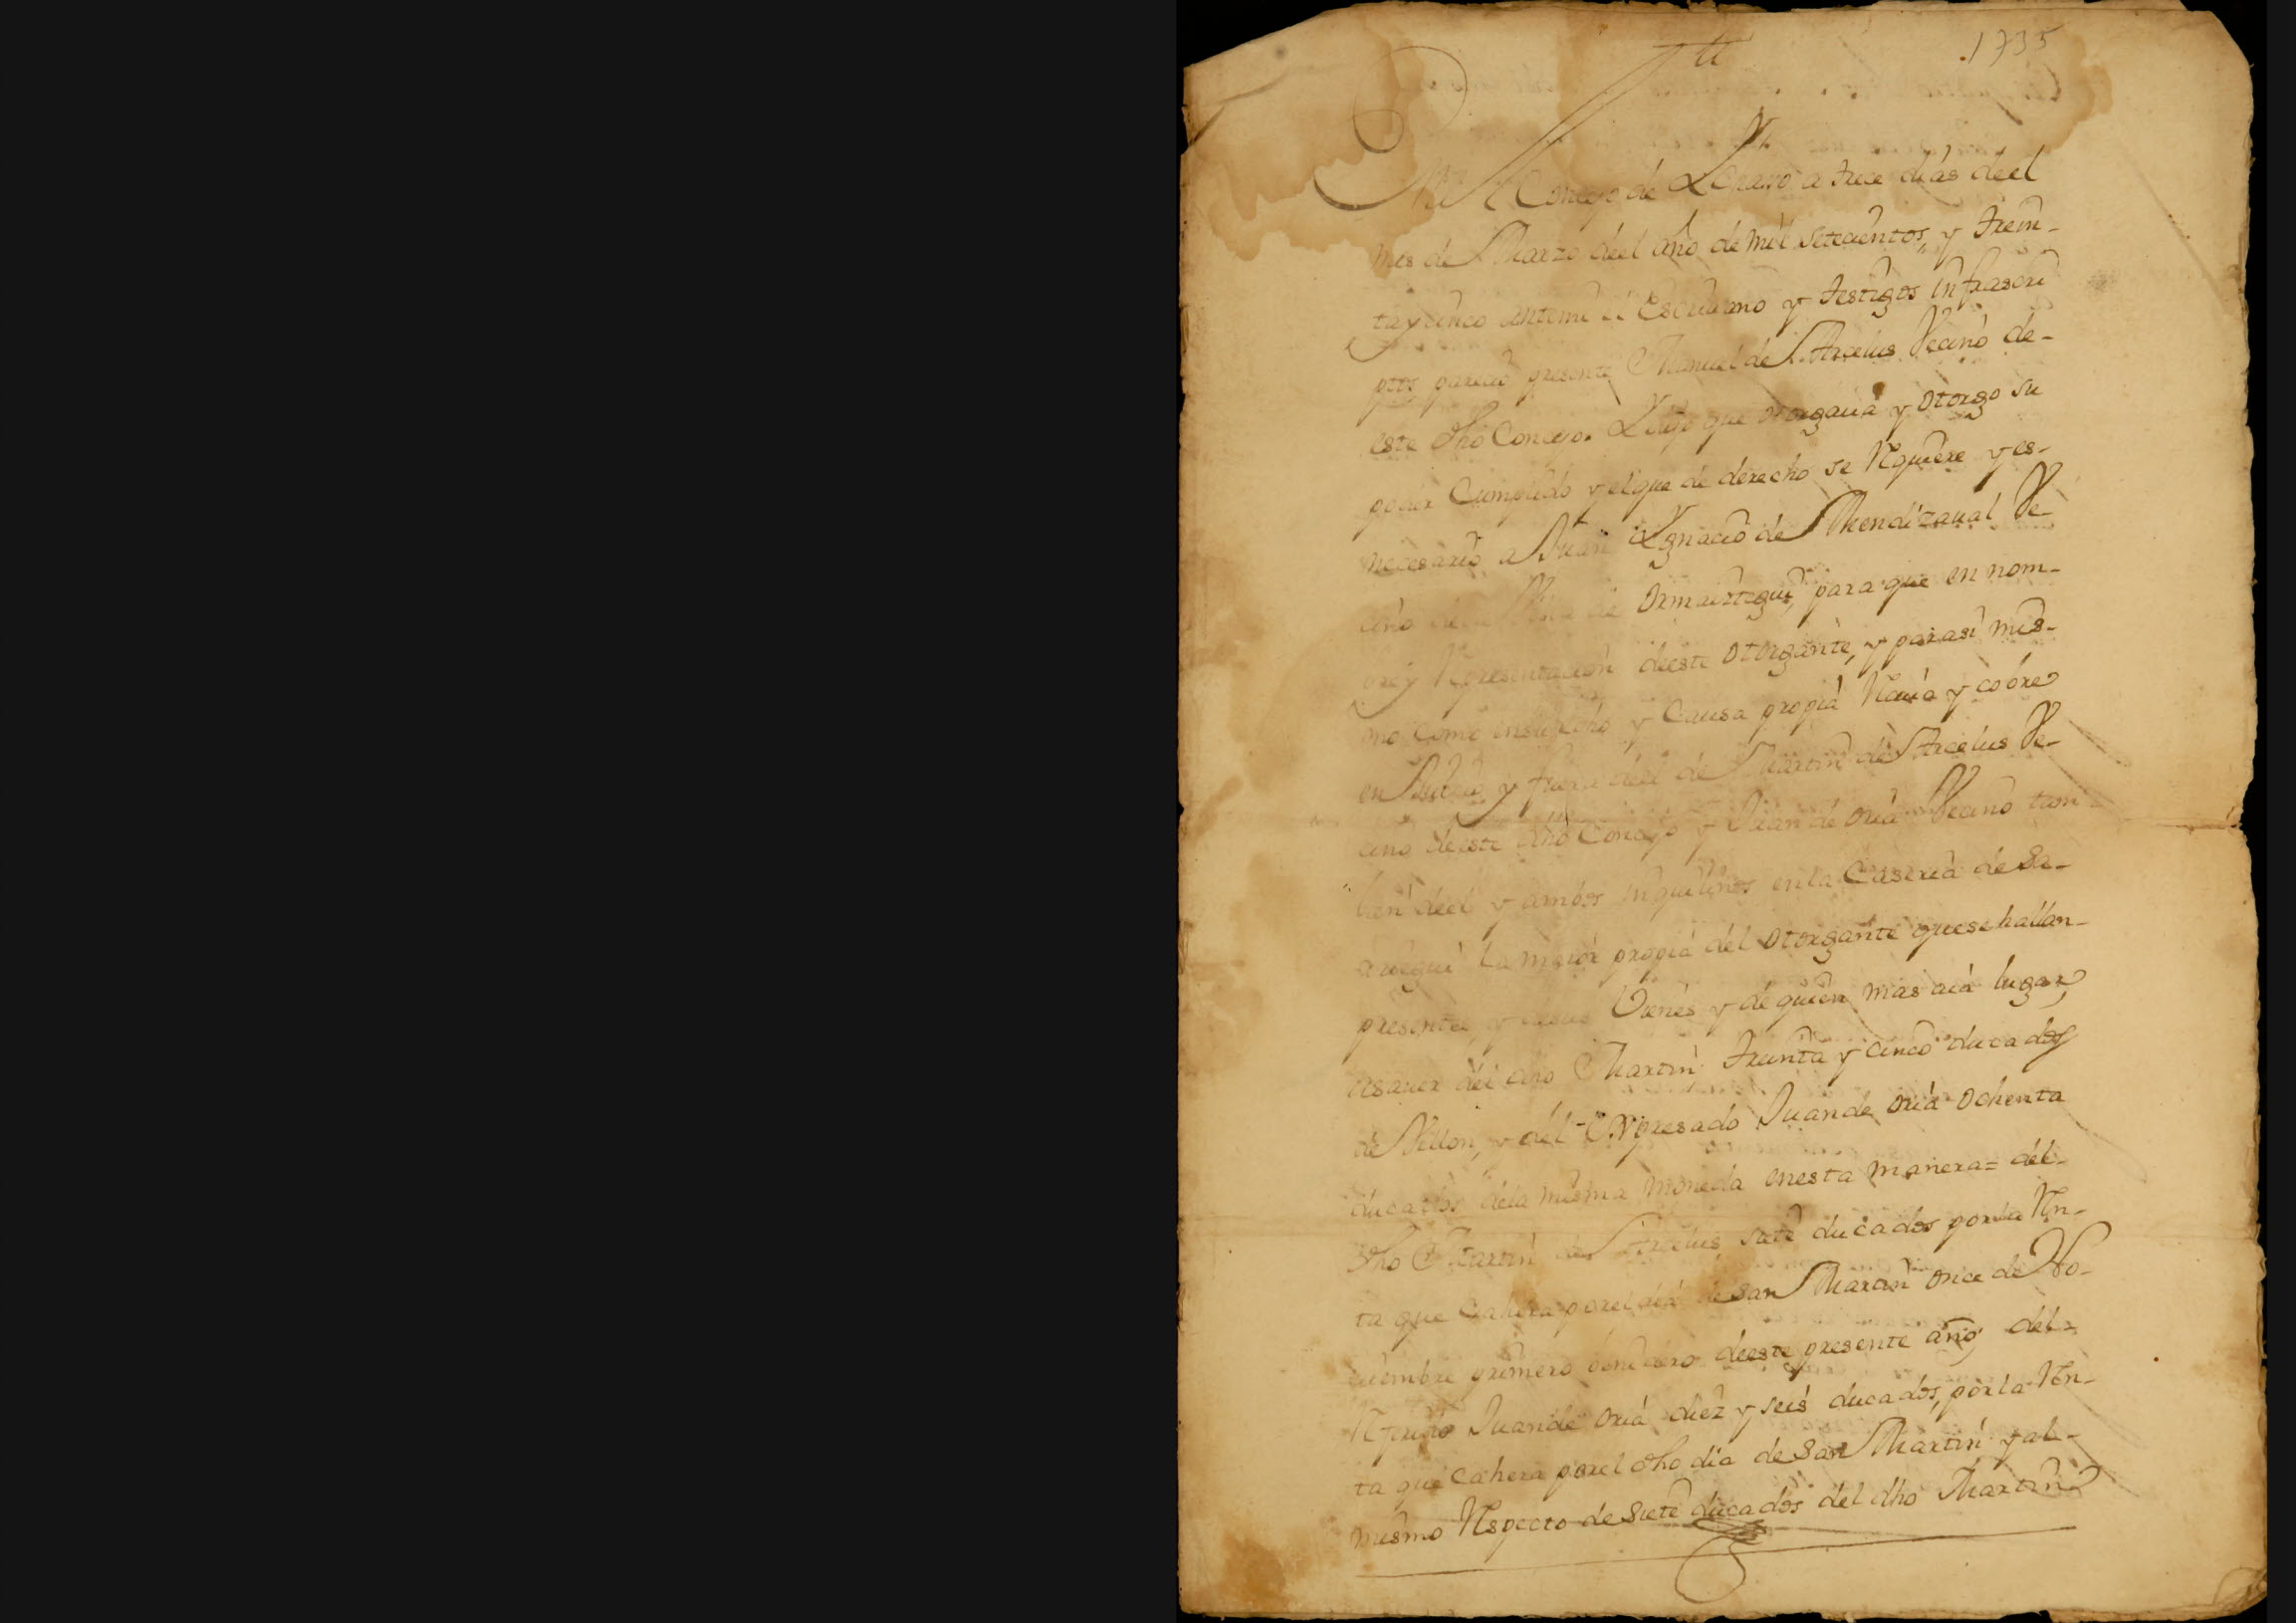 1735
En el Concejo de Lazcano a trece dias deel
mes de Marzo deel año de mil setecientos, y trein-
taycinco antemi el Escrivano y testigos infrascri
ptos parecio presente Manuel de Arcelus Vecino de-
este dho Concejo. Y dijo que otorgaua y otorgo su
poder Cumplido y elque de derecho se Requiere y es-
necesario a Juan Ygnacio de Mendizaual Ve-
cino dela Villa de Ormaiztegui, para que en nom-
bre y Representacion deeste otorgante, y parasi mis-
mo como ensu fho y Causa propia Reciua y cobre
en Juicio y fuera deel de Martin de Arcelus Ve-
cino deeste dho Concejo y Juan de oria Vecino tam-
bien deel y ambos inquilinos enla Caseria de
la maior propia del otorgante quese hallan-
presentes, y desus Vienes y de quien mas aia lugar,
asauer del dho Martin treinta y cinco ducados
de Vellon, y del Expresado Juande oria ochenta
ducados dela misma moneda enesta manera= del-
dho Martin de Arcelus siete ducados porla Ren-
ta que cahera porel dia de San Martin once de No-
uiembre primero benidero deeste presente año, del-
Referido Juande oria diez y seis ducados, porla Ren-
ta que cahera porel dho dia de San Martin y al-
mismo Respecto de siete ducados del dho Martin